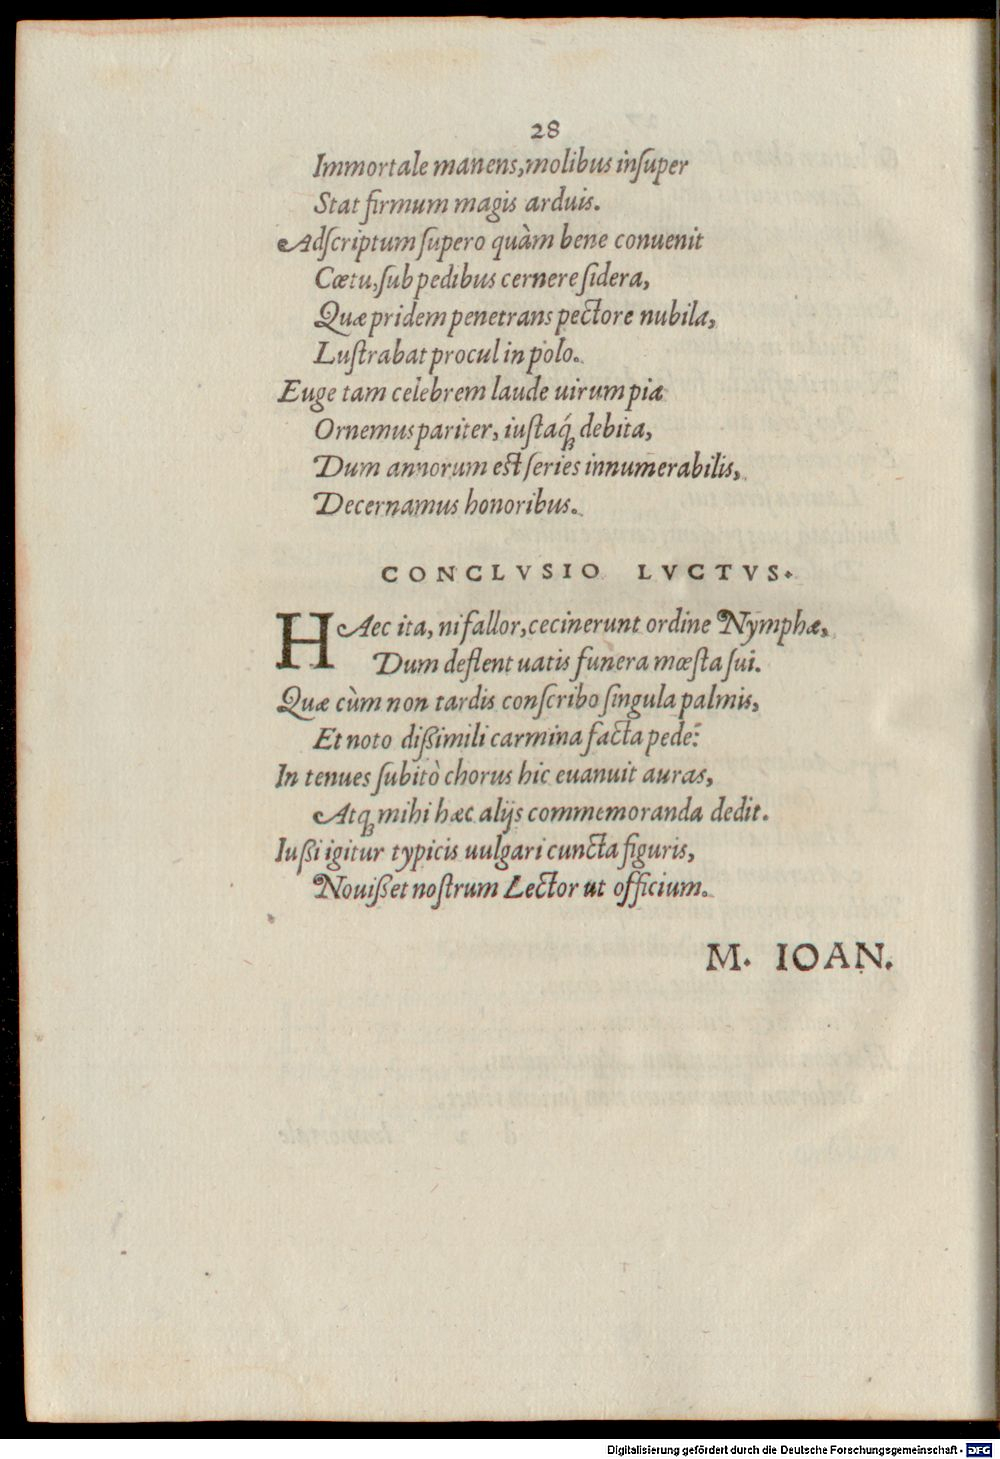 28
Immortale manens, molibus inſuper
Stat firmum magis arduis.
Adſcriptum ſupero quàm bene conuenit
Cœtu, ſub pedibus cernere ſidera,
Quæ pridem penetrans pectore nubila,
Luſtrabat procul in polo.
Euge tam celebrem laude uirum pia
Ornemus pariter, iuſtaq́; debita,
Dum annorum est ſeries innumerabilis,
Decernamus honoribus.
CONCLVSIO LVCTVS.
HAec ita, ni fallor, cecinerunt ordine Nymphæ,
Dum deflent uatis funera mœſta ſui.
Quæ cùm non tardis conſcribo ſingula palmis,
Et noto dißimili carmina facta pede:
In tenues ſubitò chorus hic euanuit auras,
Atq; mihi hæc alijs commemoranda dedit.
Iußi igitur typicis uulgari cuncta figuris,
Nouißet noſtrum Lector ut officium.
M. IOAN.
Digitalisierung gefördert durch die Deutsche Forschungsgemeinschaft - DFG